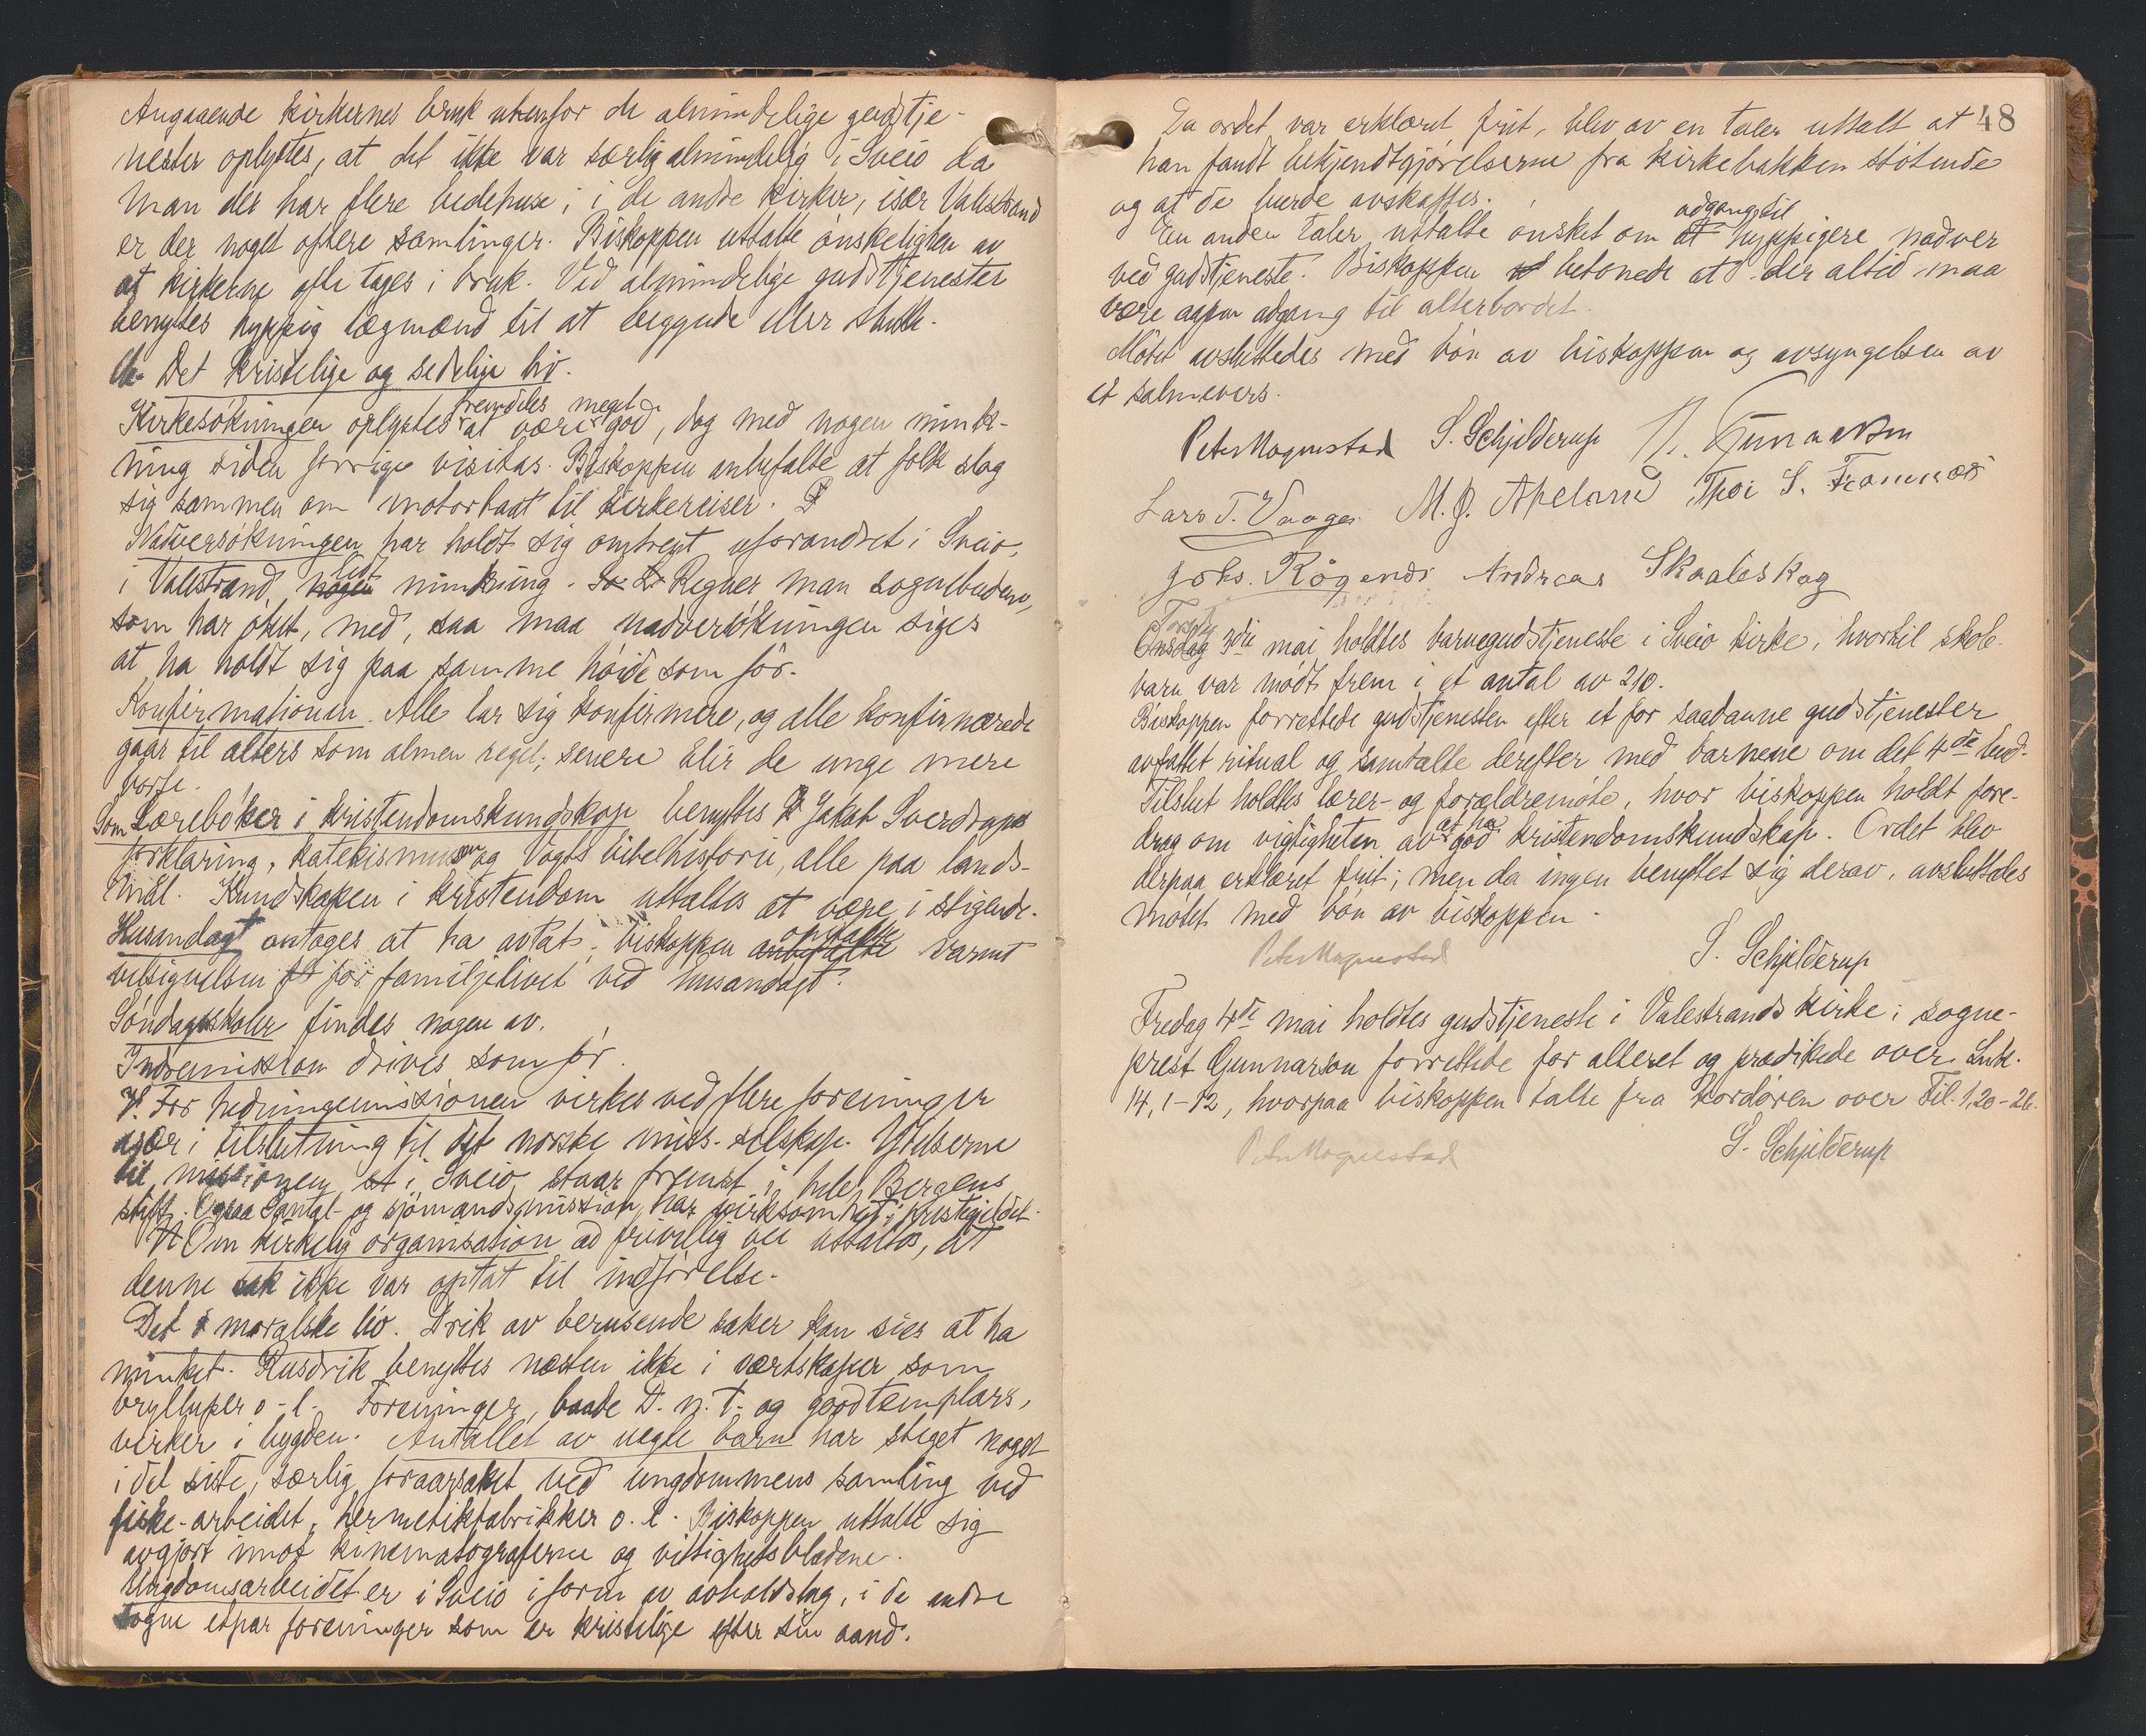 Angaaende kirkernes bruk utenfor de almindelige gudstje-
nester oplystes, at det ikke var særlig almindelig i Sveio da
man der har flere bedehuse; i de andre kirker, især Valestrand
er der noget oftere samlinger. Biskoppen uttalte ønskeligheten av
at kirkerne ofte tages i bruk. Ved almindelige gudstjenester
benyttes hyppig lægmænd til at begynde eller slutte.
Det kristelige og sedelige liv.
fremdeles meget
Kirkesökningen oplystes at være god, dog med nogen minsk-
ning siden forrige visitas. Biskoppen anbefalte at folk slog
sig sammen om motorbaat til kirkereiser.
Nadversökningen har holdt sig omtrent uforandret i Sveio,
litt
i Valestrand nogen minskning. Regner man sognebudene,
som har øket, med, saa maa nadversökningen siges
at ha holdt sig paa samme høide som før.
Konfirmationen. Alle lar sig konfirmere, og alle konfirmerede
gaar til alters som almen regel; senere blir de unge mere
borte.
Som Lærebøker i kristendomskundskap benyttes Jakob Sverdrups
forklaring, katekismus og Vogts bibelhistorie, alle paa lands-
maal. Kundskapen i kristendom uttaltes at være i stigende.
Husandagt antages at ha avtat; biskoppen anbefalte varmt
velsignelsen for familjelivet ved husandagt.
Søndagsskoler findes nogen av.
Indremission drives som før.
For hedningemissionen virkes ved flere foreninger
især i tilslutning til det norske miss. selskap. Ydelserne
til missionen i Sveio staar fremst i hele Bergens
stift. Ogsaa Santal- og sjømandsmission har virksomhet i prestegjeldet.
Om kirkelig organisation ad frivillig vei uttaltes, at
denne sak ikke var optat til indførelse.
Det moralske liv. Drik av berusende saker kan sies at ha
minket. Rusdrik benyttes næsten ikke i værtskaper som
brylluper o-l. Foreninger, baade D. n. T. og goodtemplars,
virker i bygden. Antallet av uegte barn har steget noget
i det siste, særlig foraarsaket ved ungdommens samling ved
fiske-arbeidet, hermetikfabrikker o. l. Biskoppen uttalte sig
avgjort imot kinematograferne og vittighetsbladene.
Ungdomsarbeidet er i Sveio i form av avholdslag, i de andre
sogne etpar foreninger som er kristelige efter sin aand.
48
Da ordet var erklæret frit, blev av en taler uttalt at
han fandt bekjendtgjørelserne fra kirkebakken støtende
og at de burde avskaffes.
adgang til
En anden taler uttalte ønsket om at hyppigere nadver
ved gudstjeneste. Biskoppen betonede at der altid maa
være aapen adgang til alterbordet.
Møtet avsluttedes med bøn av biskoppen og avsyngelsen av
et salmevers.
Peter Mognestad S. Schjelderup N. Gunnarson
Lars T. Vaage. M. J. Apeland Thoi S. Framnæs
Johs. Røgenes Andreas Skaaleskog
Torsdag
Onsdag 3die mai holdtes barnegudstjeneste i Sveio kirke, hvortil skole-
barn var mødt frem i et antal av 210.
Biskoppen forrettede gudstjenesten efter et for saadanne gudstjenester
avfattet ritual og samtalte derefter med barnene om det 4de bud.
Tilslut holdtes lærer- og forældremøte, hvor biskoppen holdt fore-
at ha
drag om vigtigheten av god kristendomskundskap. Ordet blev
derpaa erklæret frit; men da ingen benyttet sig derav, avsluttedes
møtet med bøn av biskoppen.
Peter Mognestad S. Schjelderup
Fredag 4de mai holdtes gudstjeneste i Valestrands kirke; sogne-
prest Gunnarson forrettede for alteret og prædikede over Luk.
14, 1-12, hvorpaa biskoppen talte fra kordøren over Fil. 1, 20-26.
Peter Mognestad S. Schjelderup